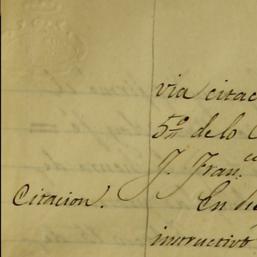 via citac
5º de lo C
J. Fran.co
Citacion. En di
instructivo